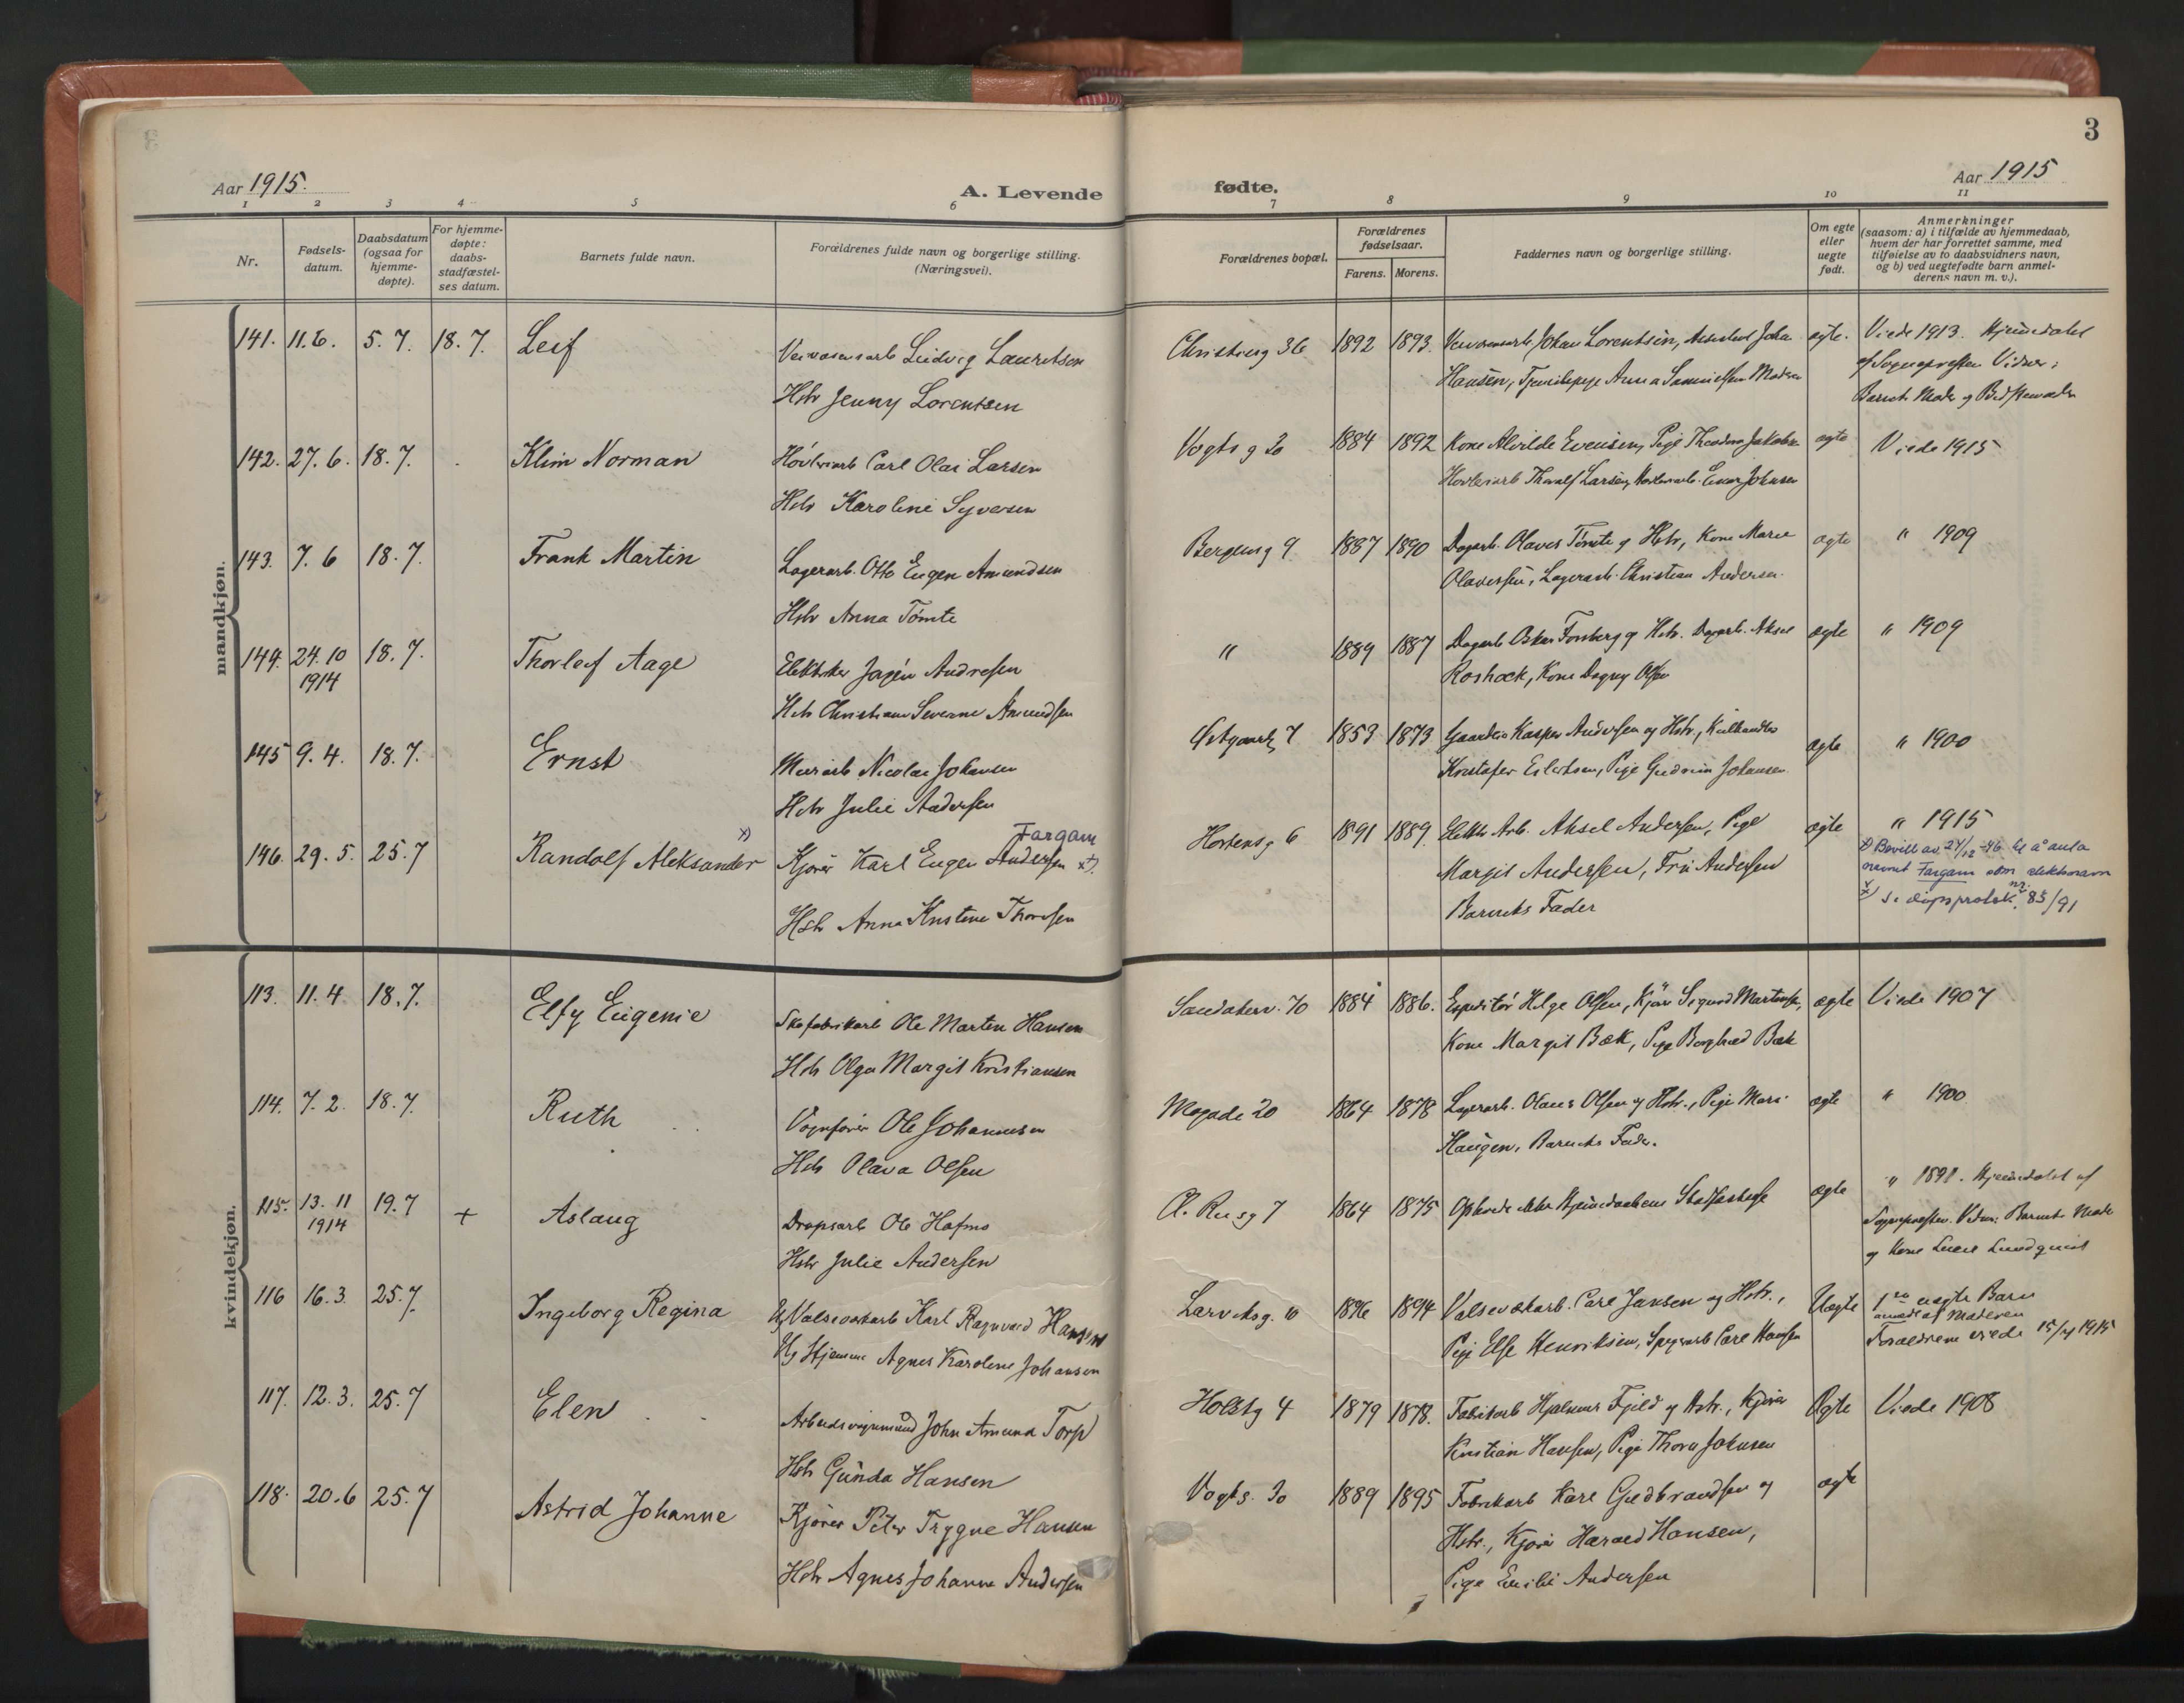 3
Aar 1915.
A. Levende
fødte.
Aar 1915
1 2 3 4 5 6 7 8 9 10 11
Nr.
Fødsels-
datum.
Daabsdatum
(ogsaa for
hjemme-
døpte).
For hjemme-
døpte:
daabs-
stadfæstel-
ses datum.
Barnets fulde navn.
Forældrenes fulde navn og borgerlige stilling.
(Næringsvei).
Forældrenes bopæl.
Forældrenes
fødselsaar.
Farens. Morens.
Faddernes navn og borgerlige stilling.
Om egte
eller
uegte
født.
Anmerkninger
(saasom: a) i tilfælde av hjemmedaab,
hvem der har forrettet samme, med
tilføielse av to daabsvidners navn,
og b) ved uegtefødte barn anmel-
derens navn m. v.).
mandkjøn.
141. 11.6. 5.7. 18.7. Leif
Ludvig Lauritsen
Hstr Jenny Lorentsen
36 1892 1893. Johan Lorentsen,
Hansen, Anna
egte. Viede 1913. Hjemdøbt
af Sognepresten
Barnets Moder og
142. 27.6. 18.7. Klim Norman
Høvleriarb Carl Olai Larsen
Hstr Karoline Syversen
Vogts g 20 1884 1892 Kone Alvilde Evensen, Pige
Høvleriarb Thoralf Larsen, Einar Johnsen
egte Viede 1915
143. 7.6 18.7. Frank Martin
Lagerarb. Otto Eugen Amundsen
Hstr Anna Tømte
Bergensg 9. 1887 1890 Dagarb. Olaves Tømte og Hstr, Kone Marie
Olavessen, Lagerarb. Christian Andersen.
egte " 1909
144. 24.10 18.7. Thorleif Aage
1914
Elektriker Andresen
Hstr Severine Amundsen
" 1889 1887 Dagarb Oskar Forsberg og Hstr. Dagarb. Aksel
Kone Dagny Olsen
egte " 1909
145 9.4. 18.7. Ernst
Murarb Nicolai Johansen
Hstr Julie Andersen
7 1853 1873 Kasper Andersen og Hstr.,
Kristofer Eilertsen, Pige Gudrun Johansen
egte " 1900
146. 29.5. 25.7 Randolf Aleksander x)
Fargam
Kjører Karl Eugen Andersen xx).
Hstr Anna Kristine Thoresen
Hortensg 6 1891 1889. Elektr Arb. Aksel Andersen, Pige
Margit Andersen, Fru Andersen
Barnets Fader
egte " 1915
x) Bevill av 27/12-46 til å anta
navnet Fargam som slektsnavn
nr. 85/91
kvindekjøn.
113. 11.4 18.7. Elfy Eugenie
Skofabrikarb Ole Martin Hansen
Hstr Olga Margit Kristiansen
Sandakerv. 70 1884 1886. Expeditør Helge Olsen, Kjører Sigurd Martinsen,
Kone Margit Bæk, Pige Borghild Bæk
egte Viede 1907
114. 7.2. 18.7. Ruth
Vognfører Ole Johannesen
Hstr Olava Olsen
20 1864 1878 Lagerarb. Olaus Olsen og Hstr., Pige Mari
Haugen, Barnets Fader.
egte " 1900
115. 13.11 19.7 + Aslaug
1914
Dropsarb Ole Hofmo
Hstr Julie Andersen
7 1864 1875
egte " 1891. Hjemdøbt af
Sognepresten. Barnets Moder
og Kone Lundquist
116 16.3. 25.7. Ingeborg Regina
Ug Valseværkarb Karl Ragnvald Hansen
Ug Hjemme Agnes Karoline Johansen
Larviksg. 10 1896 1894 Valseværkarb. Carl Jansen og Hstr.,
Pige Else Henriksen, Carl Hansen
Uegte 1ste uegte Barn
anmeldt af Moderen
Forældrene viede 15/7 1915
117. 12.3. 25.7 Elen
John Amund Torp
Hstr Gunda Hansen
Holstg 4 1879 1878. Fabrikarb Hjalmar Fjeld og Hstr., Kjører
Kristian Hansen, Pige Thora Johnsen
Ægte Viede 1908
118. 20.6 25.7 Astrid Johanne
Kjører Peter Trygve Hansen
Hstr Agnes Johanne Andersen
Vogts. 20 1889 1895 Fabrikarb Karl Gudbrandsen og
Hstr., Kjører Harald Hansen,
Pige Emilie Andersen
egte